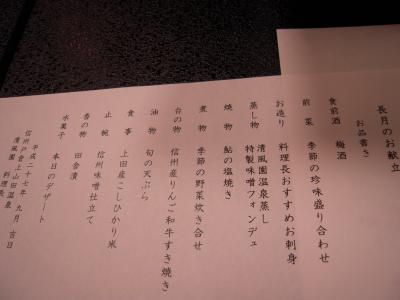 長月のお献立
お品書き
食前酒 梅酒
前菜 季節の珍味盛り合わせ
お造り 料理長おすすめお刺身
蒸し物 清風園温泉蒸し
特製味噌フォンデュ
焼物 鮎の塩焼き
煮物 季節の野菜炊き合せ
台の物 信州産りんご和牛すき焼き
油物 旬の天ぷら
食事 上田産こしひかり米
止椀 信州味噌仕立て
香の物 田舎漬
水菓子 本日のデザート
平成二十七年 九月 吉日
信州戸倉上山田温泉
清風園 料理長